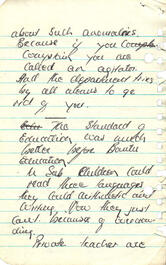 about such anomalies.
Because if you Complain
Complain you are
Called an agitator.
And the department tries
by all means to get
rid of you.
The Standard of
Education was much
better before Bantu
Education.
In Sub. Children could
read three languages
they could arithmetic and
writing. Now they just
Can't because of overcrow-
ding.
Private teachers are